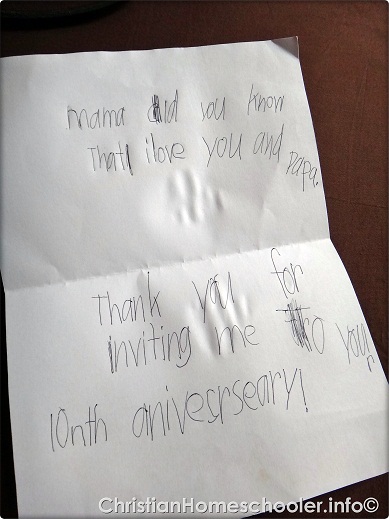 mama did you know
that i love you and papa.
Thank you for
inviting me to your
10nth anivecrseary!
ChristianHomeschooler.info©